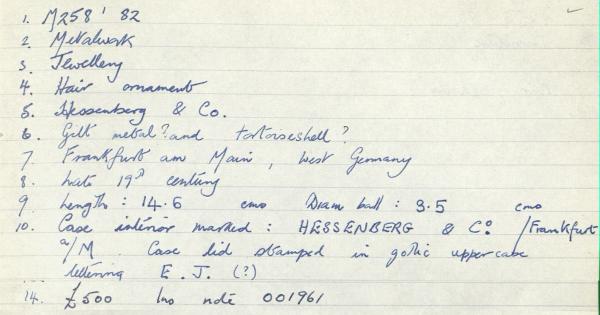 1. M258' 82
2. Metalwork
3. Jewellery
4. Hair ornament
5. Hessenberg & Co.
6. Gilt metal? and tortoiseshell?
7. Frankfurt am Main, West Germany
8. Late 19th century
9 Length: 14.6 cms Diam ball: 3.5 cms
10. Case interior marked: HESSENBERG & Co /Frankfurt
a/M Case lid stamped in gothic uppercase
lettering E.J. (?)
14. £500 Ins note 001961